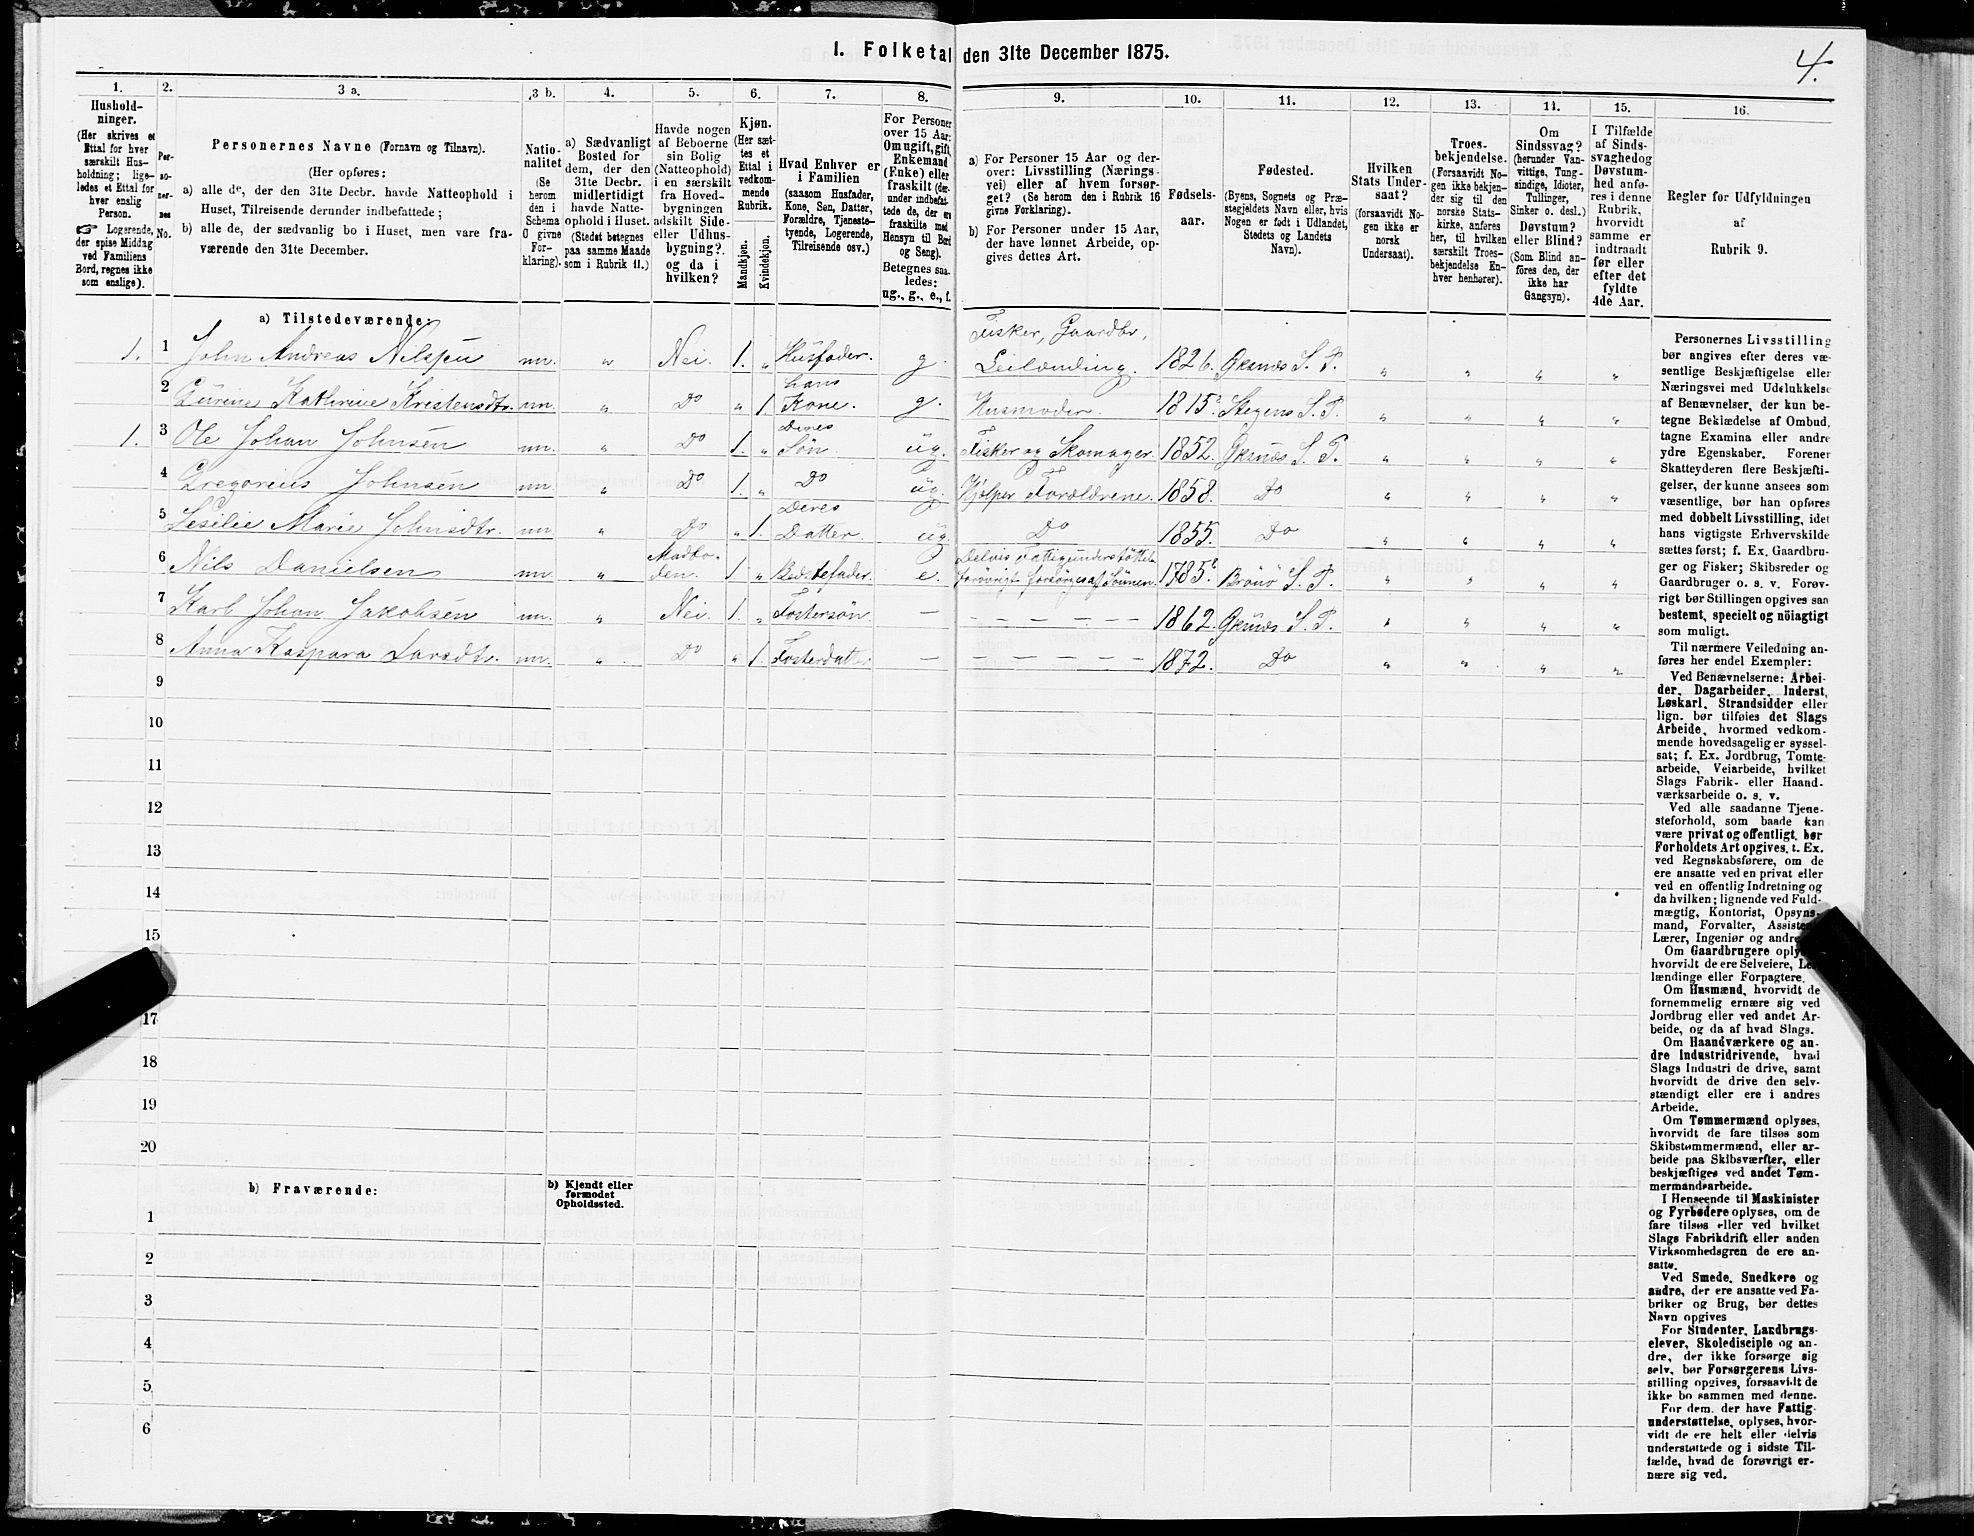 I. Folketal den 31te December 1875.
4.
1.
Hushold-
ninger.
(Her skrives et
Ettal for hver
særskilt Hus-
holdning; lige-
ledes et Ettal for
hver enslig
Person.
☞ Logerende,
der spise Middag
ved Familiens
Bord, regnes ikke
som enslige).
2.
Per-
so-
ner-
nes
No.
3 a.
Personernes Navne (Fornavn og Tilnavn).
(Her opføres:
a) alle de, der den 31te Decbr. havde Natteophold i
Huset, Tilreisende derunder indbefattede;
b) alle de, der sædvanlig bo i Huset, men vare fra-
værende den 31te December.
3 b.
Natio-
nalitet
(Se
herom
den i
Schema
O givne
For-
klaring).
4.
a) Sædvanligt
Bosted for
dem, der den
31te Decbr.
midlertidigt
havde Natte-
ophold i Huset.
(Stedet betegnes
paa samme Maade
som i Rubrik 11.)
5.
Havde nogen
af Beboerne
sin Bolig
(Natteophold)
i en særskilt
fra Hoved-
bygningen
adskilt Side-
eller Udhus-
bygning?
og da i
hvilken?
6.
Kjøn.
(Her sæt-
tes et
Ettal i
vedkom-
mende
Rubrik.
Mandkjøn.
Kvindekjøn.
7.
Hvad Enhver er
i Familien
(saasom Husfader,
Kone, Søn, Datter,
Forældre, Tjeneste-
tyende, Logerende,
Tilreisende osv.)
8.
For Personer
over 15 Aar:
Om ugift, gift,
Enkemand
(Enke) eller
fraskilt (der-
under indbefat-
tede de, der er
fraskilte med
Hensyn til Bord
og Seng).
Betegnes saa-
ledes:
ug., g., e., f.
9.
a) For Personer 15 Aar og der-
over: Livsstilling (Nærings-
vei) eller af hvem forsør-
get? (Se herom den i Rubrik 16
givne Forklaring).
b) For Personer under 15 Aar,
der have lønnet Arbeide, op-
gives dettes Art.
10.
Fødsels-
aar.
11.
Fødested.
(Byens, Sognets og Præ-
stegjeldets Navn eller, hvis
Nogen er født i Udlandet,
Stedets og Landets
Navn).
12.
Hvilken
Stats Under-
saat?
(forsaavidt No-
gen ikke er
norsk
Undersaat).
13.
Troes-
bekjendelse.
(Forsaavidt No-
gen ikke bekjen-
der sig til den
norske Stats-
kirke, anføres
her, til hvilken
særskilt Troes-
bekjendelse En-
hver henhører).
14.
Om
Sindssvag?
(herunder Van-
vittige, Tung-
sindige, Idioter,
Tullinger,
Sinker o. desl.)
Døvstum?
eller Blind?
(Som Blind an-
føres den, der
ikke har
Gangsyn).
15.
I Tilfælde
af Sinds-
svaghed og
Døvstum-
hed anfø-
res i denne
Rubrik,
hvorvidt
samme er
indtraadt
før eller
efter det
fyldte
4de Aar.
16.
Regler for Udfyldningen
af
Rubrik 9.
a) Tilstedeværende:
1. 1 John Andreas Nilssen nn. „ Nei. 1. „ Husfader. g. Fisker, Gaardbr, Leilænding. 1826. Øksnæs S. P. „ „ „ „
2 Gurine Kathrine Kristensdtr. nn. „ Do „ 1 hans Kone. g. Husmoder. 1815. Stegens S. P. „ „ „ „
1. 3 Ole Johan Johnsen nn. „ Do 1. „ Deres Søn ug. Fisker og Skomager. 1852. Øksnæs S. P. „ „ „ „
4 Gregoreus Johnsen nn. „ Do 1. „ Do ug. Hjelper Forældrene. 1858. Do „ „ „ „
5 Cesilie Marie Johnsdtr. nn. „ Do „ 1. Deres Datter. ug. Do 1855. Do „ „ „ „
6 Nils Danielsen nn. „ 1 „ Bedstefader. e. Delvis Fattigunderstøttet forøvrigt forsørges af Sønnen. 1785. Brønø S. P. „ „ „ „
7 Karl Johan Jakobsen nn. „ Nei. 1. „ Fostersøn. — — — — — 1862. Øksnæs S. P. „ „ „ „
8 Anna Kaspara Larsdtr. nn. „ Do „ 1. Fosterdatter — — — — — 1872. Do „ „ „ „
9
10
11
12
13
14
15
17
18
19
20
b) Fraværende:
b) Kjendt eller
formodet
Opholdssted.
1
2
3
4
5
6
Personernes Livsstilling
bør angives efter deres væ-
sentlige Beskjæftigelse eller
Næringsvei med Udelukkelse
af Benævnelser, der kun be-
tegne Beklædelse af Ombud,
tagne Examina eller andre
ydre Egenskaber. Forener
Skatteyderen flere Beskjæfti-
gelser, der kunne ansees som
væsentlige, bør han opføres
med dobbelt Livsstilling, idet
hans vigtigste Erhvervskilde
sættes først; f. Ex. Gaardbru-
ger og Fisker; Skibsreder og
Gaardbruger o. s. v. Forøv-
rigt bør Stillingen opgives saa
bestemt, specielt og nöiagtigt
som muligt.
Til nærmere Veiledning an-
føres her endel Exempler:
Ved Benævnelserne: Arbei-
der, Dagarbeider, Inderst,
Løskarl, Strandsidder eller
lign. bør tilføies det Slags
Arbeide, hvormed vedkom-
mende hovedsagelig er syssel-
sat; f. Ex. Jordbrug, Tomte-
arbeide, Veiarbeide, hvilket
Slags Fabrik- eller Haand-
værksarbeide o. s. v.
Ved alle saadanne Tjene-
steforhold, som baade kan
være privat og offentligt, bør
Forholdets Art opgives, t. Ex.
ved Regnskabsførere, om de
ere ansatte ved en privat eller
ved en offentlig Indretning og
da hvilken; lignende ved Fuld-
mægtig, Kontorist, Opsyns-
mand, Forvalter, Assistent,
Lærer, Ingeniør og andre.
Om Gaardbrugere oplyses,
hvorvidt de ere Selveiere, Lei-
lændinge eller Forpagtere.
Om Husmænd, hvorvidt de
fornemmelig ernære sig ved
Jordbrug eller ved andet Ar-
beide, og da af hvad Slags.
Om Haandværkere og an-
dre Industridrivende, hvad
Slags Industri de drive, samt
hvorvidt de drive den selv-
stændigt eller ere i andres
Arbeide.
Om Tømmermænd oplyses,
hvorvidt de fare tilsøs som
Skibstømmermænd, eller ar-
beide paa Skibsværfter, eller
beskjæftiges ved andet Tøm-
mermandsarbeide.
I Henseende til Maskinister
og Fyrbødere oplyses, om de
fare tilsøs eller ved hvilket
Slags Fabrikdrift eller anden
Virksomhedsgren de ere an-
satte.
Ved Smede, Snedkere og
andre, der ere ansatte ved Fa-
briker og Brug, bør dettes
Navn opgives
For Studenter, Landbrugs-
elever, Skoledisciple og an-
dre, der ikke forsørge sig
selv, bør Forsørgerens Livs-
stilling opgives, forsaavidt de
ikke bo sammen med denne.
For dem, der have Fattig-
understøttelse, oplyses, hvor-
vidt de ere helt eller delvis
understøttede og i sidste Til-
fælde, hvad de forøvrigt er-
nære sig ved.